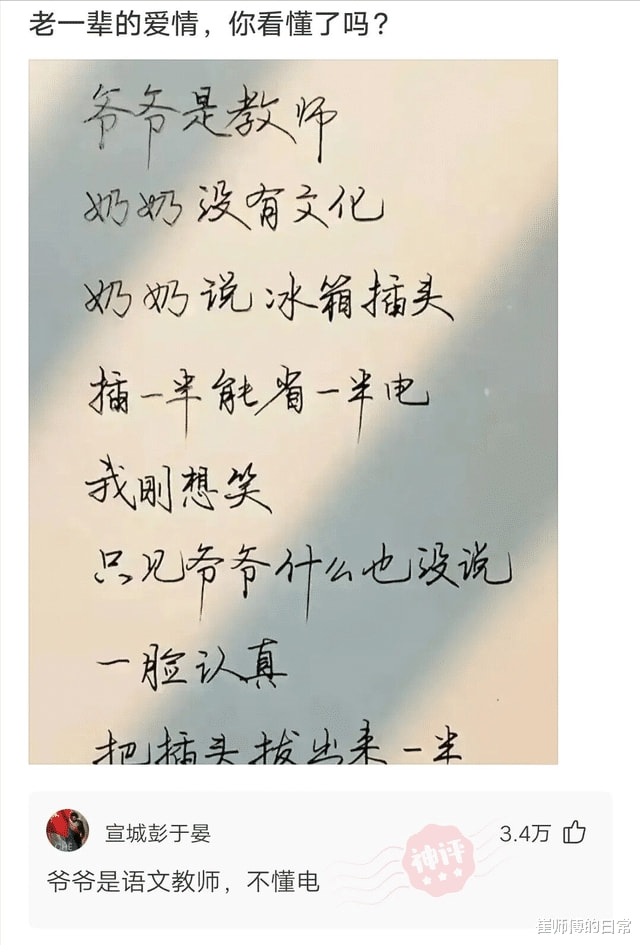 老一辈的爱情，你看懂了吗？
爷爷是教师
奶奶没有文化
奶奶说冰箱插头
插一半能省一半电
我刚想笑
只见爷爷什么也没说
一脸认真
把插头拔出来一半
宣城彭于晏
3.4万
神评
爷爷是语文教师，不懂电
崔师傅的日常